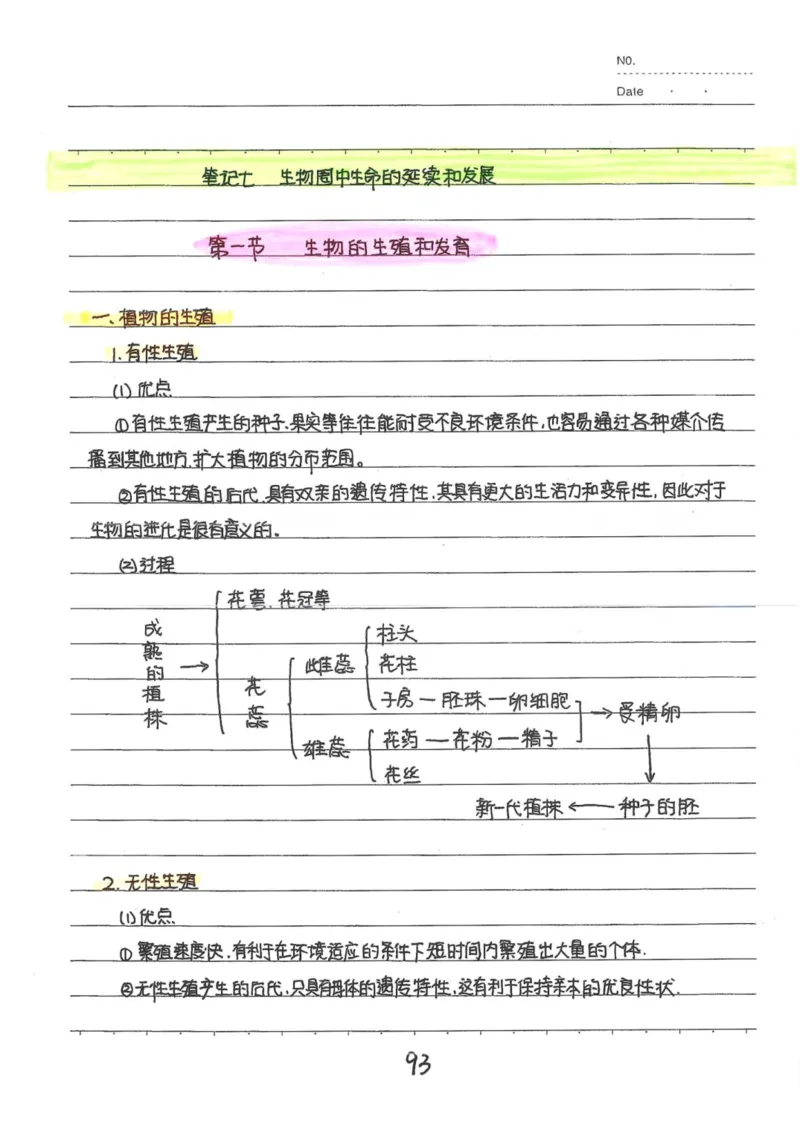 NO.
Date
笔记七 生物圈中生命的延续和发展
第一节 生物的生殖和发育
一、植物的生殖
1.有性生殖
(1)优点
①有性生殖产生的种子、果实等往往能耐受不良环境条件,也容易通过各种媒介传
播到其他地方,扩大植物的分布范围。
②有性生殖的后代,具有双亲的遗传特性,其具有更大的生活力和变异性,因此对于
生物的进化是很有意义的。
(2)过程
成熟的植株 →
花萼、花冠等
花蕊
雌蕊
柱头
花柱
子房—胚珠—卵细胞
雄蕊
花药—花粉—精子
花丝
→受精卵
新一代植株←种子的胚
2.无性生殖
(1)优点
①繁殖速度快,有利于在环境适应的条件下短时间内繁殖出大量的个体.
②无性生殖产生的后代,只具有母体的遗传特性,这有利于保持亲本的优良性状.
93